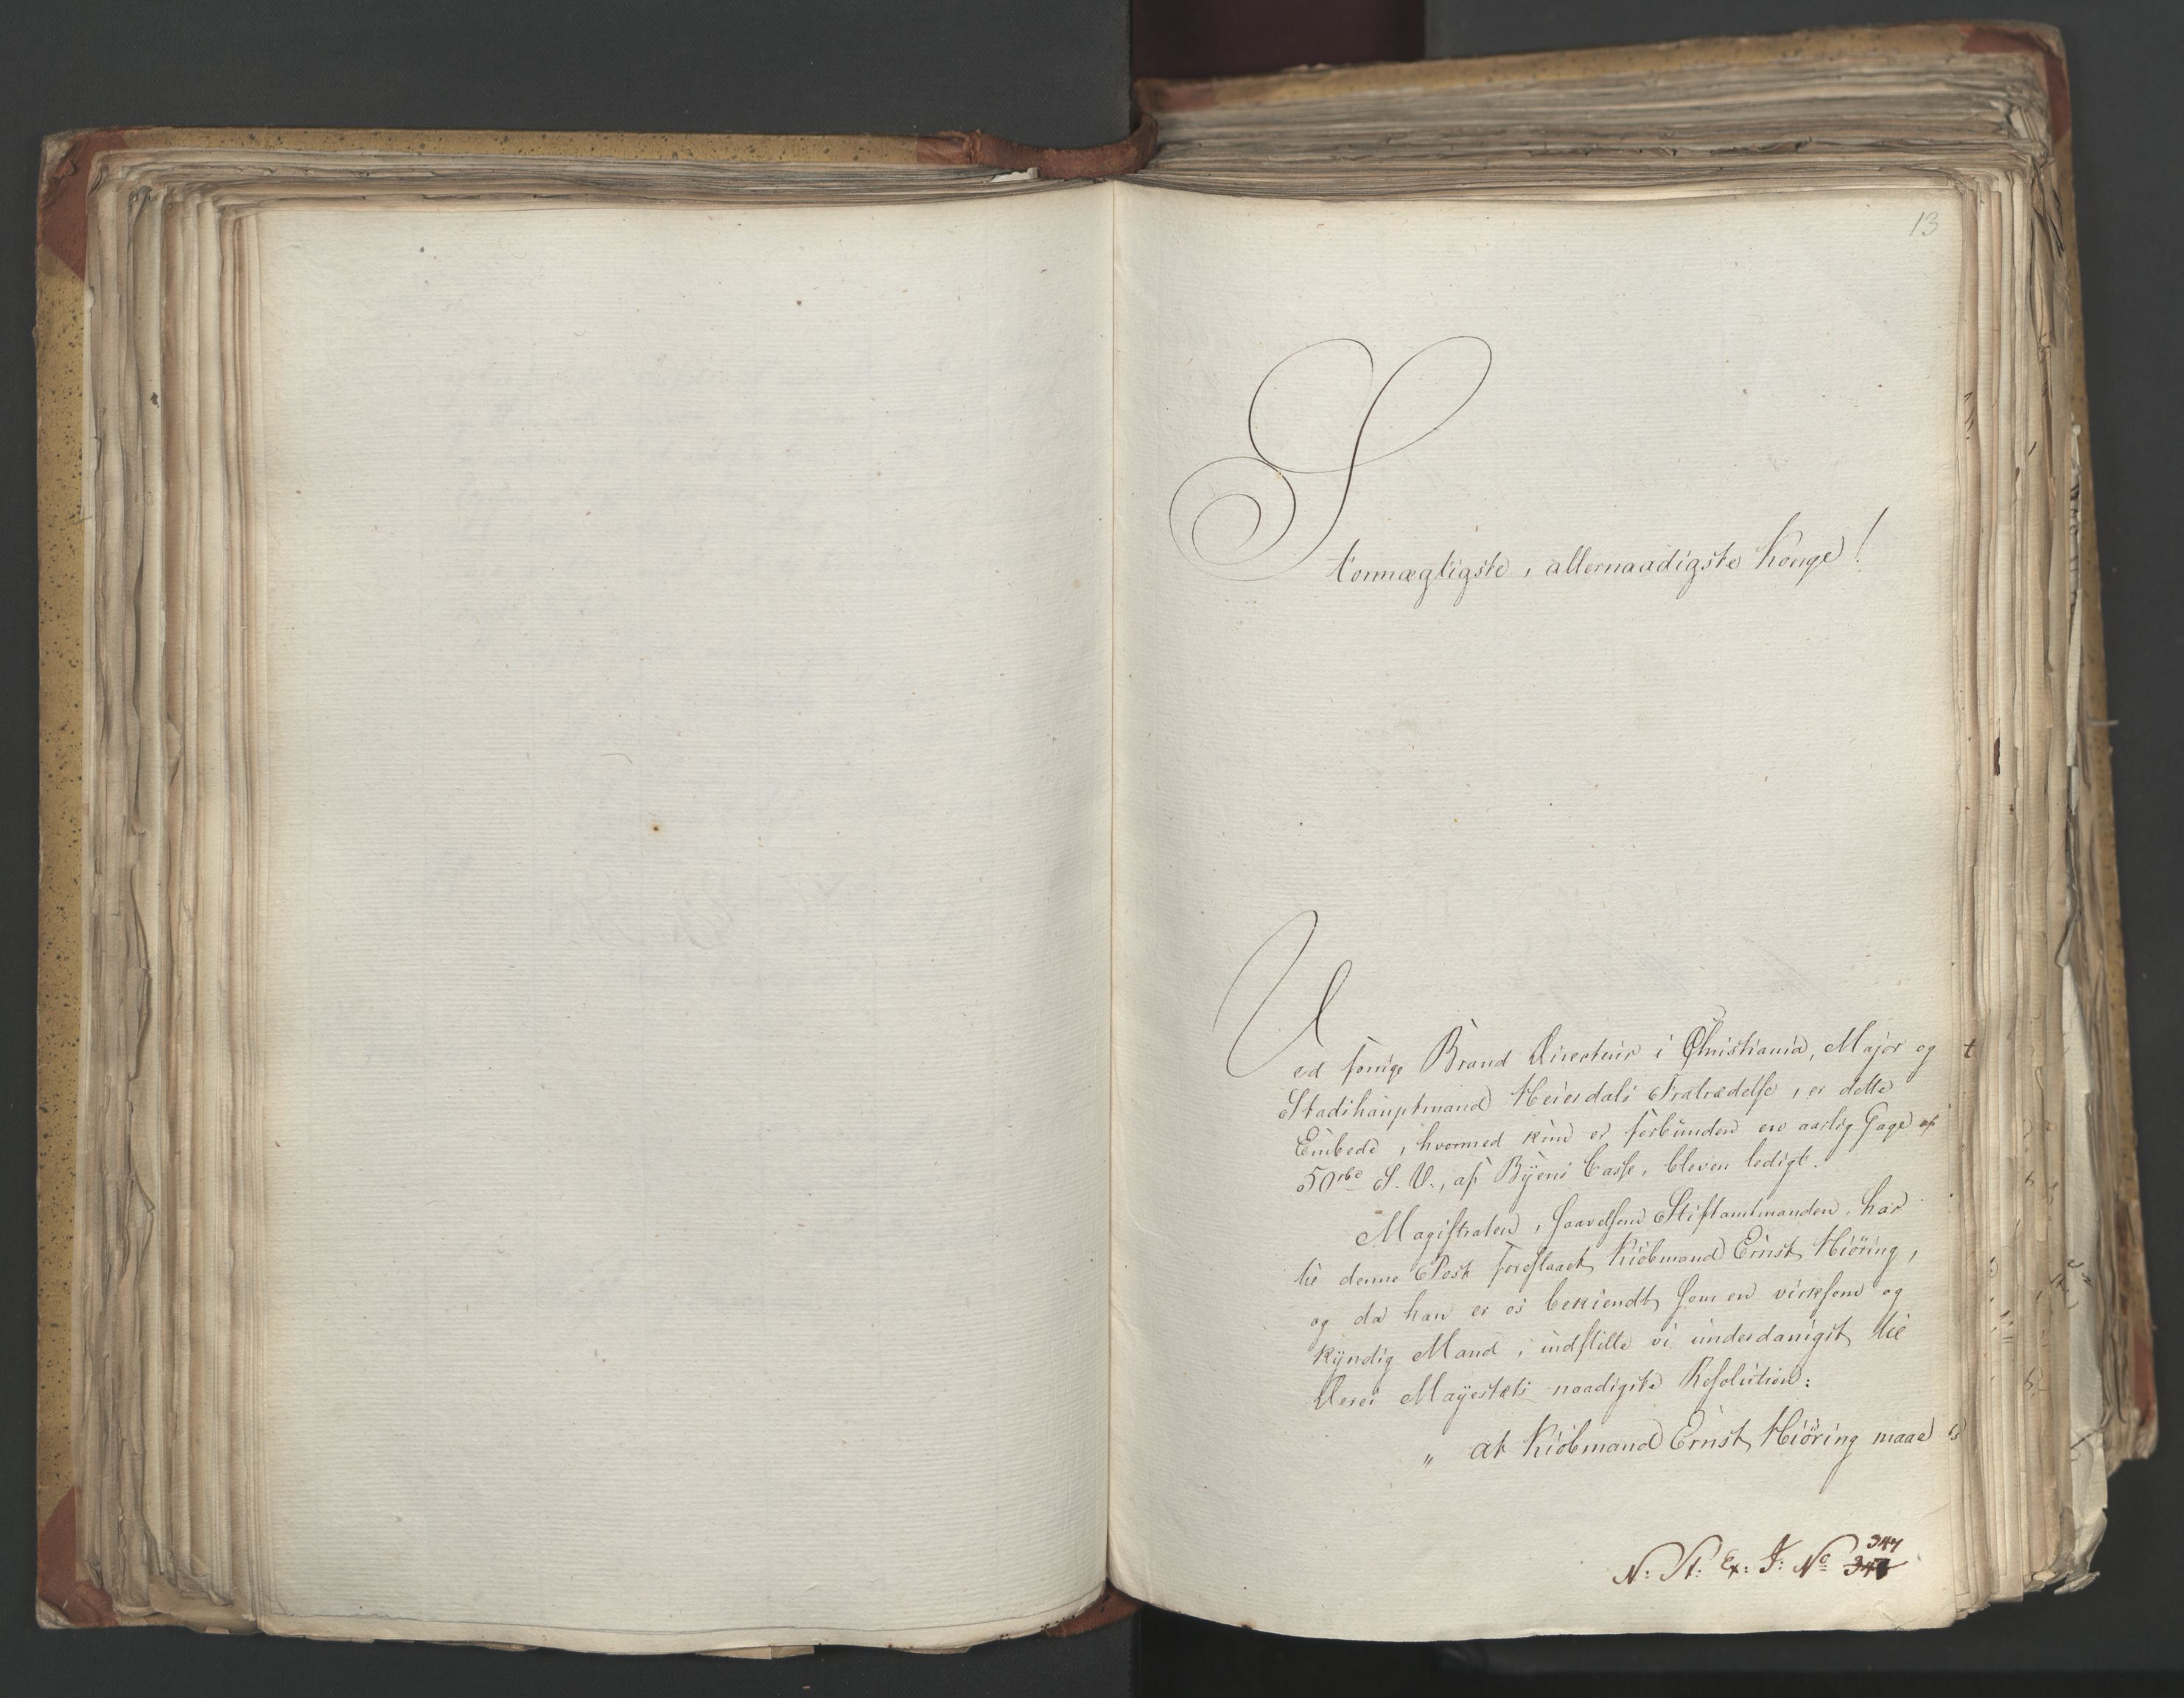 13
Stormægtigste, allernaadigste Konge!
Ved forrige Brand Directeur i Christiania, Major og
Stadshauptmand Heierdals Fratrædelse, er dette
Embede, hvormed kun er forbunden en aarlig Gage af
50 rbd S. V., af Byens Casse, bleven ledigt.
Magistraten, saavelsom Stiftamtmanden, har
til denne Post foreslaaet Kiöbmand Ernst Hiöring,
og da han er os bekiendt som en virksom og
kyndig Mand, indstille vi underdanigst til
Deres Mayestæts naadigste Resolution:
" at Kiöbmand Ernst Hiöring maae
N: St: Ex: J: No 344